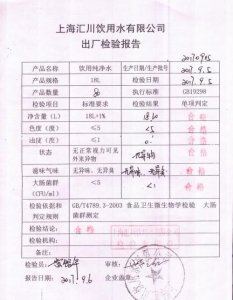 上海汇川饮用水有限公司
出厂检验报告
产品名称 饮用纯净水 生产日期/生产批号 20170905
2017.9.5
产品规格 18L 检验日期 2017.9.5
产品数量 执行标准 GB19298
检验项目 标准要求 检验结果 单项判定
净含量（L） 18L+1% 合格
色度（度） ≤5 <5 合格
浊度（度） ≤1 <1 合格
状态 无正常视力可见外来异物 无异物 合格
滋味气味 无异味、无异臭 无异味、无异臭 合格
大肠菌群（CFU/ml） ≤ <1 合格
检验依据和判定规则 GB/T4789.3-2003 食品卫生微生物学检验 大肠菌群测定
检验结论： 合格
检验机构：
备注：
检验员： 审核：
报告日期： 2017.9.6 企业盖章：